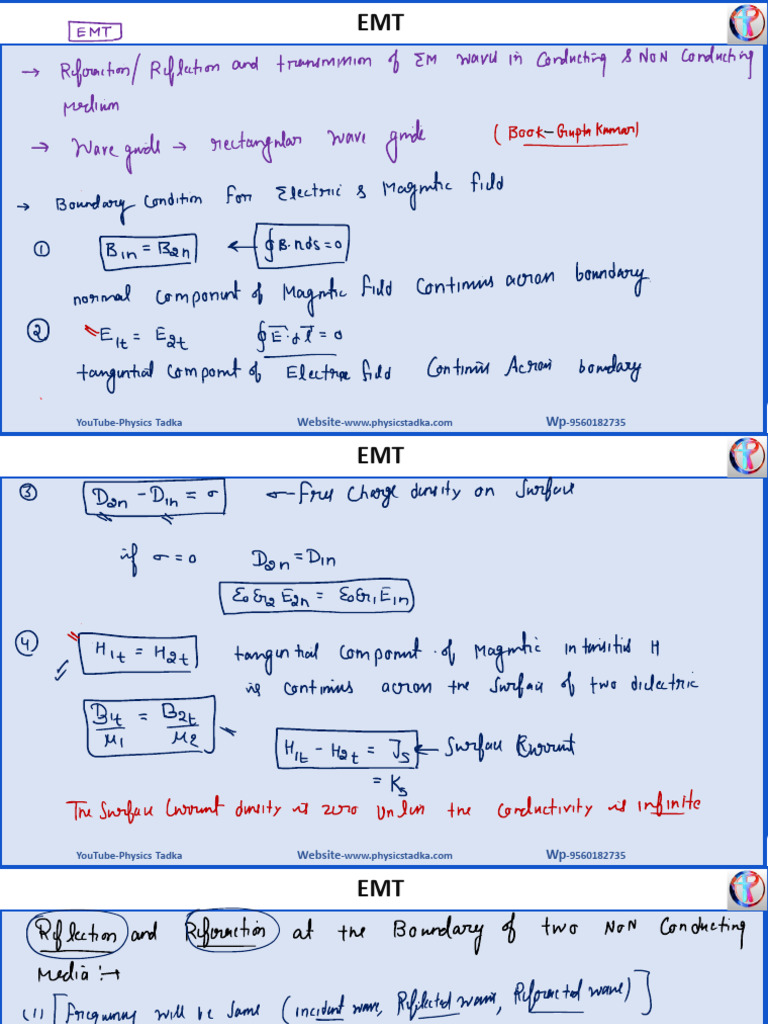 EMT
EMT
→ Refraction/Reflection and transmission of EM wave in Conducting & Non Conducting
medium
→ Wave guide → rectangular wave guide (Book-Gupta Kumar)
→ Boundary Condition For Electric & Magnetic field
① B1n = B2n ← ∮B·n ds = 0
normal component of Magnetic field Continus across boundary
② E1t = E2t ∮E⃗·dl⃗ = 0
tangential component of Electric field Continus Across boundary
YouTube-Physics Tadka Website-www.physicstadka.com Wp-9560182735
EMT
③ D2n - D1n = σ σ - Free Charge density on Surface
if σ = 0 D2n = D1n
ε0εr2 E2n = ε0εr1 E1n
④ H1t = H2t tangential component of Magnetic intensities H
is continus across the surface of two dielectric
B1t/μ1 = B2t/μ2
H1t - H2t = Js ← Surface Current
= Ks
The Surface Current density is zero unless the conductivity is infinite
YouTube-Physics Tadka Website-www.physicstadka.com Wp-9560182735
EMT
Reflection and Refraction at the Boundary of two Non Conducting
Media :→
(1) [Frequency will be same (incident wave, Reflected wave, Refracted wave)]